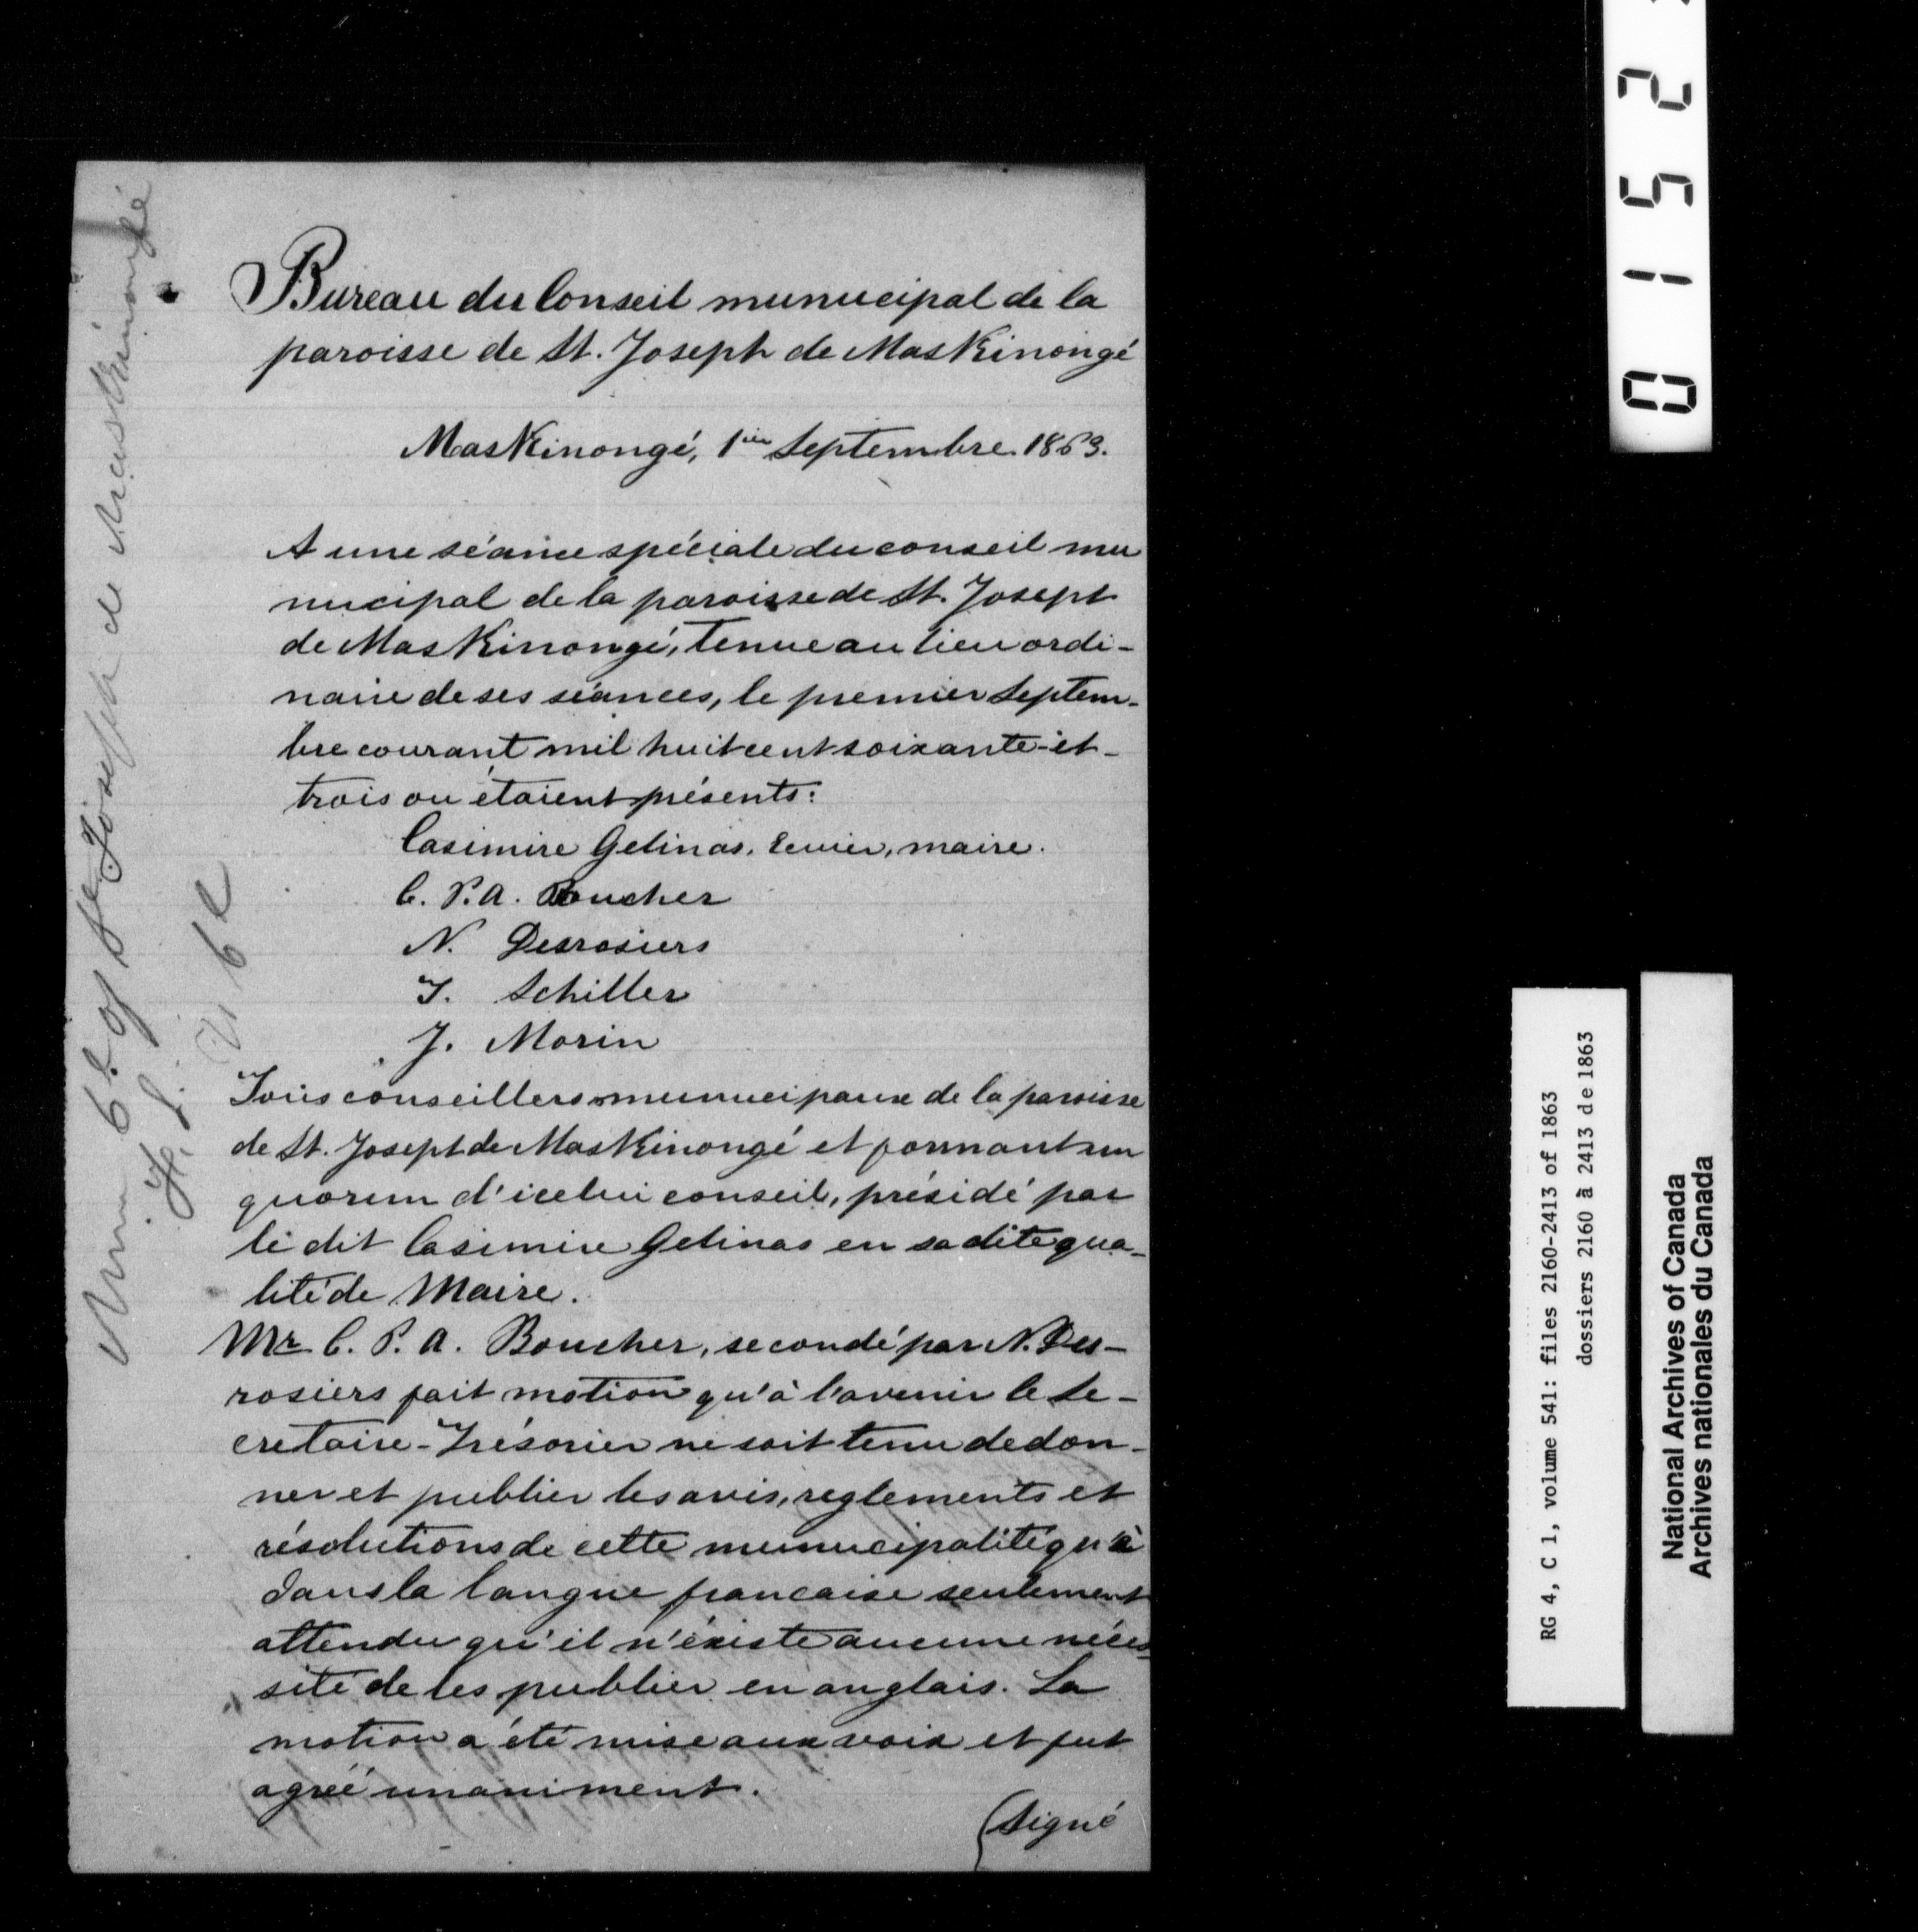 Bureau du Conseil municipal de la
paroisse de St. Joseph de Maskinongé
Maskinongé, 1ier Septembre. 1863.
A une séance spéciale du conseil mu
nicipal de la paroisse de St. Joseph
de Maskinongé, tenue au lieu ordi-
naire de ses séances, le premier Septem-
bre courant mil huit cent soixante-et-
trois ou étaient présents:
Casimire Gelinas, Ecuier, maire.
C. P. A. Boucher
N. Desrosiers
J. Schiller
J. Morin
Tous conseillers municipaux de la paroisse
de St. Joseph de Maskinongé et formant un
quorum d'icelui conseil, présidé par
le dit Casimire Gelinas en sa dite qua-
lité de Maire.
Mr C. P. A. Boucher, secondé par N. Des-
rosiers fait motion qu'à l'avenir le Se-
cretaire-Trésorier ne soit tenu de don-
ner et publier les avis, reglements et
résolutions de cette municipalité qu'à
dans la langue francaise seulement
attendu qu'il n'éxiste aucune néces-
sité de les publier en anglais. La
motion a été mise aux voix et fut
agréé unaniment.
(Signé
Mun Cl. of St. Joseph de Maskinongé
0152
RG 4, C 1, volume 541: files 2160-2413 of 1863
dossiers 2160 à 2413 de 1863
National Archives of Canada
Archives nationales du Canada